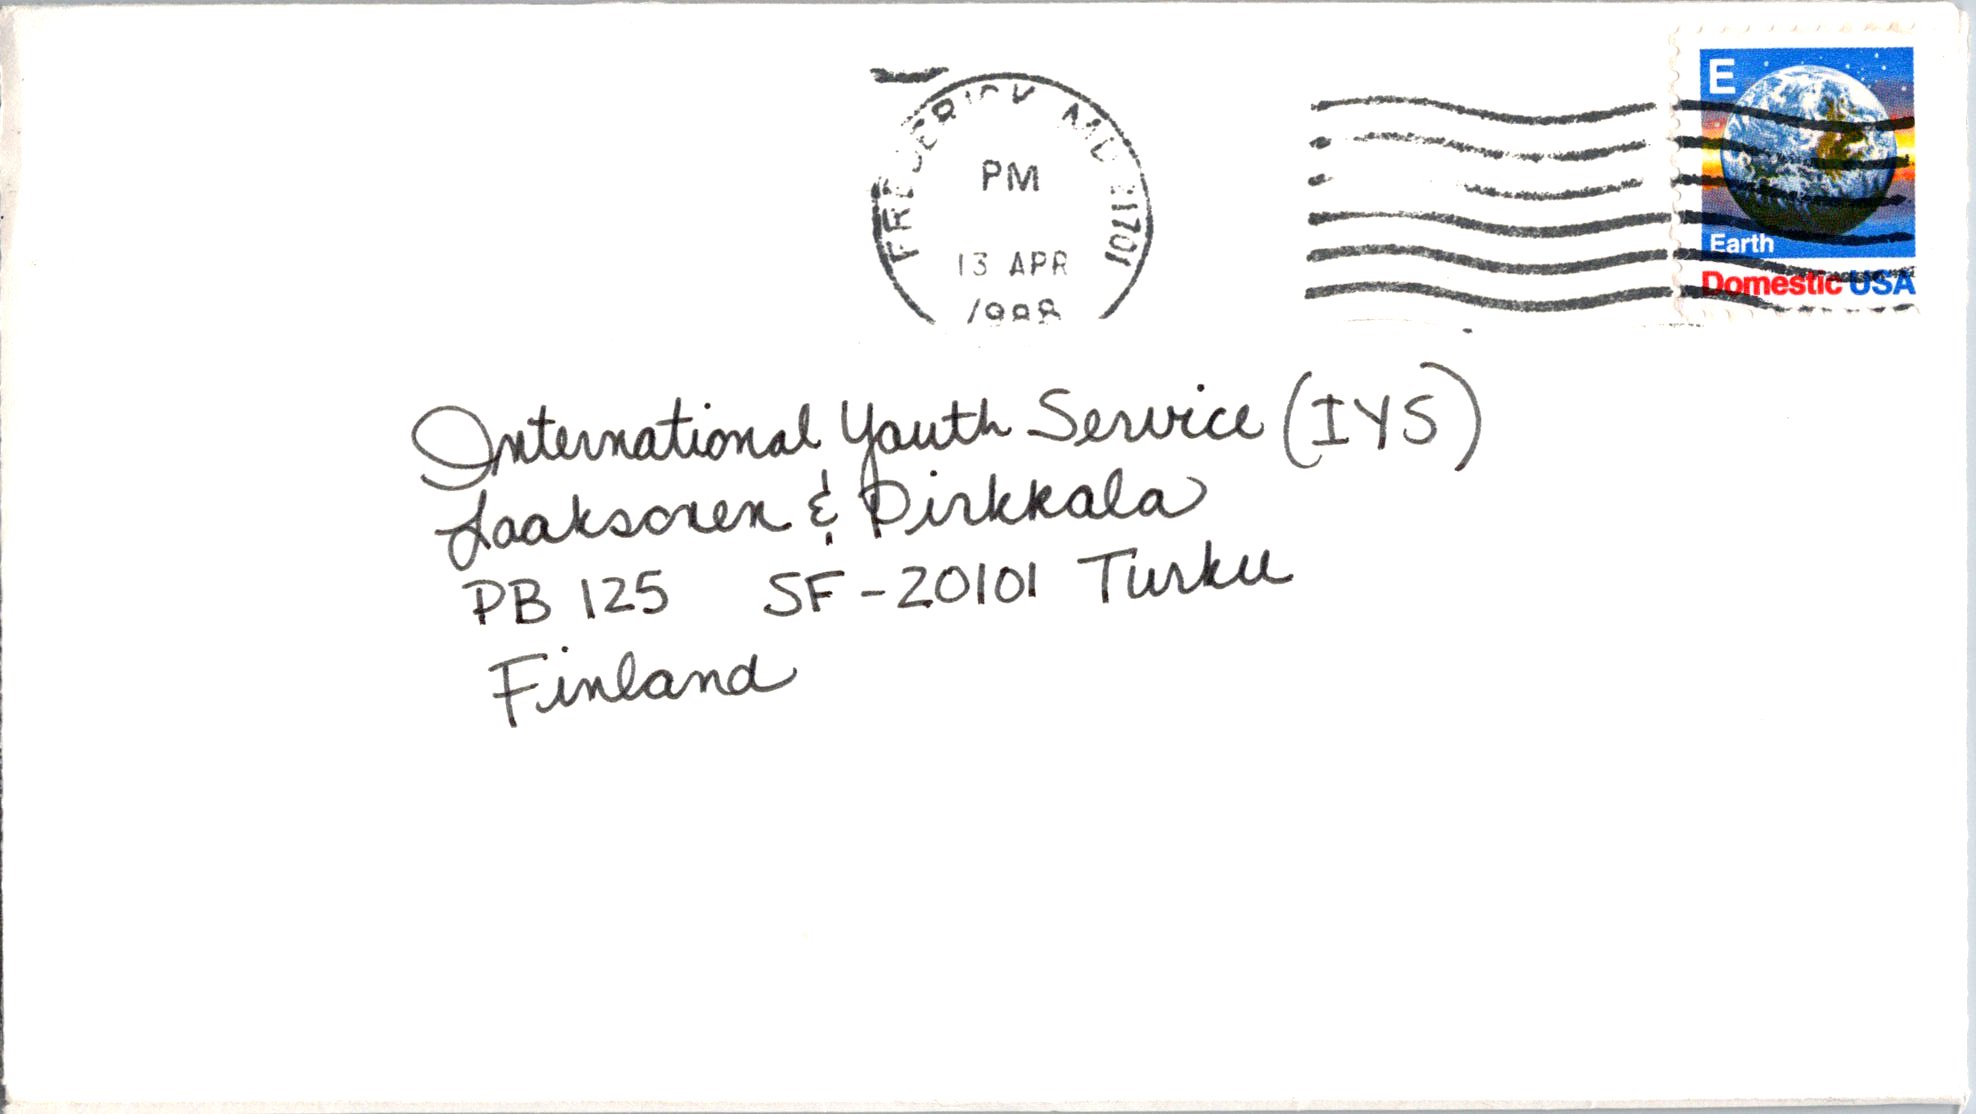 FREDERICK MD 21701
PM
13 APR
1988
E
Earth
Domestic USA
International Youth Service (IYS)
Laaksonen & Pirkkala
PB 125 SF-20101 Turku
Finland